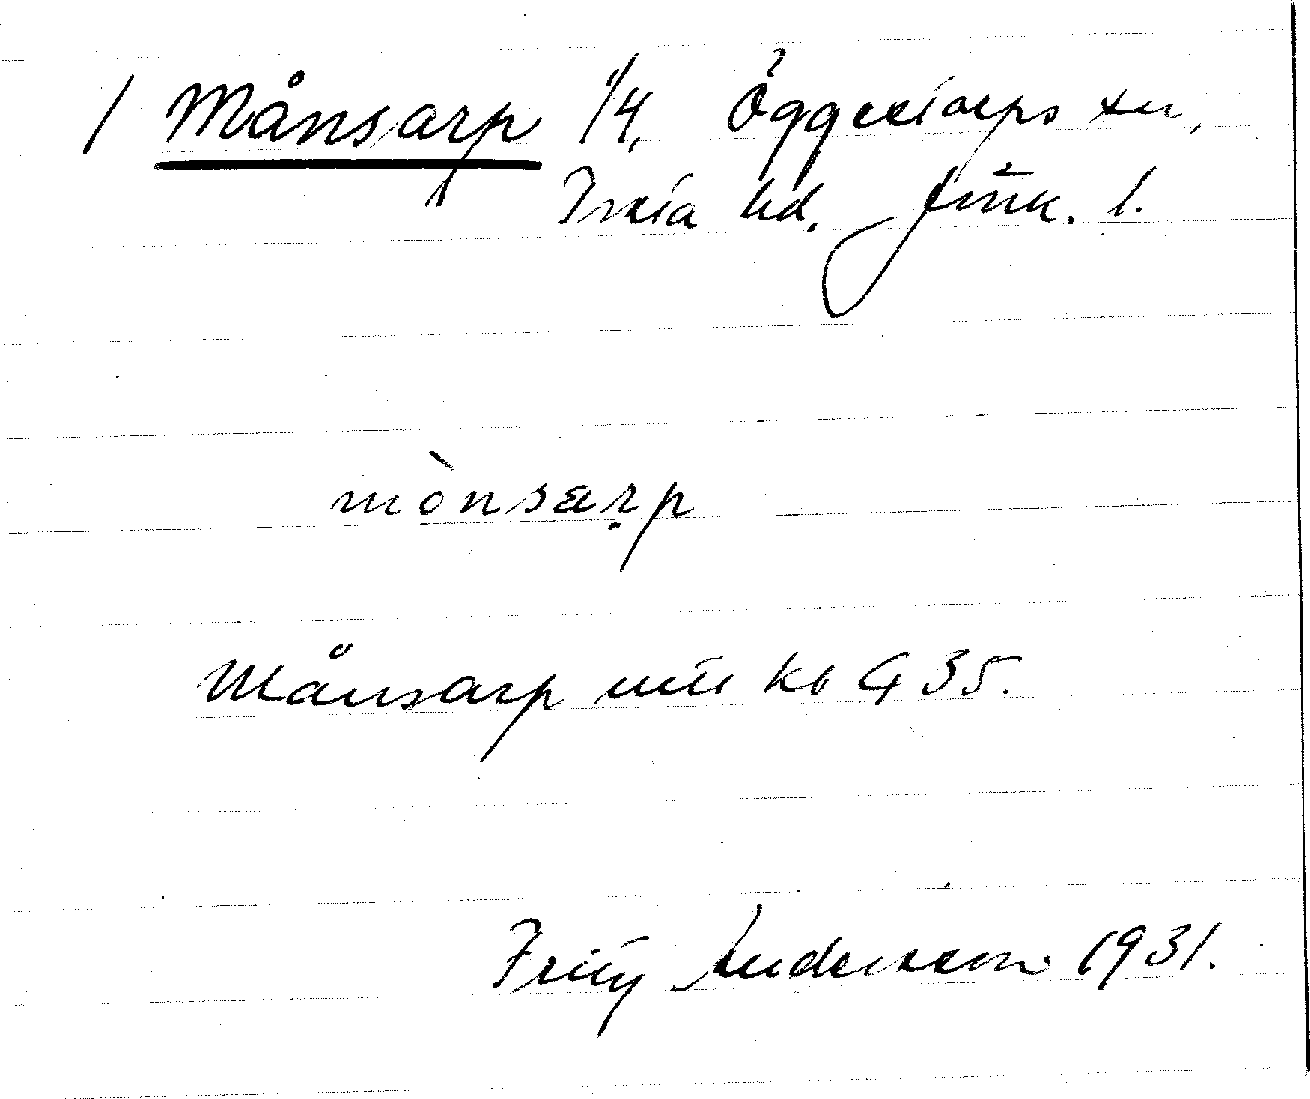 / Månsarp 1/4, Öggestorps sn,
Tveta hd, Jönk. l.
mònsarp
Månsarp mtl kb G 35.
Fritz Andersson 1931.